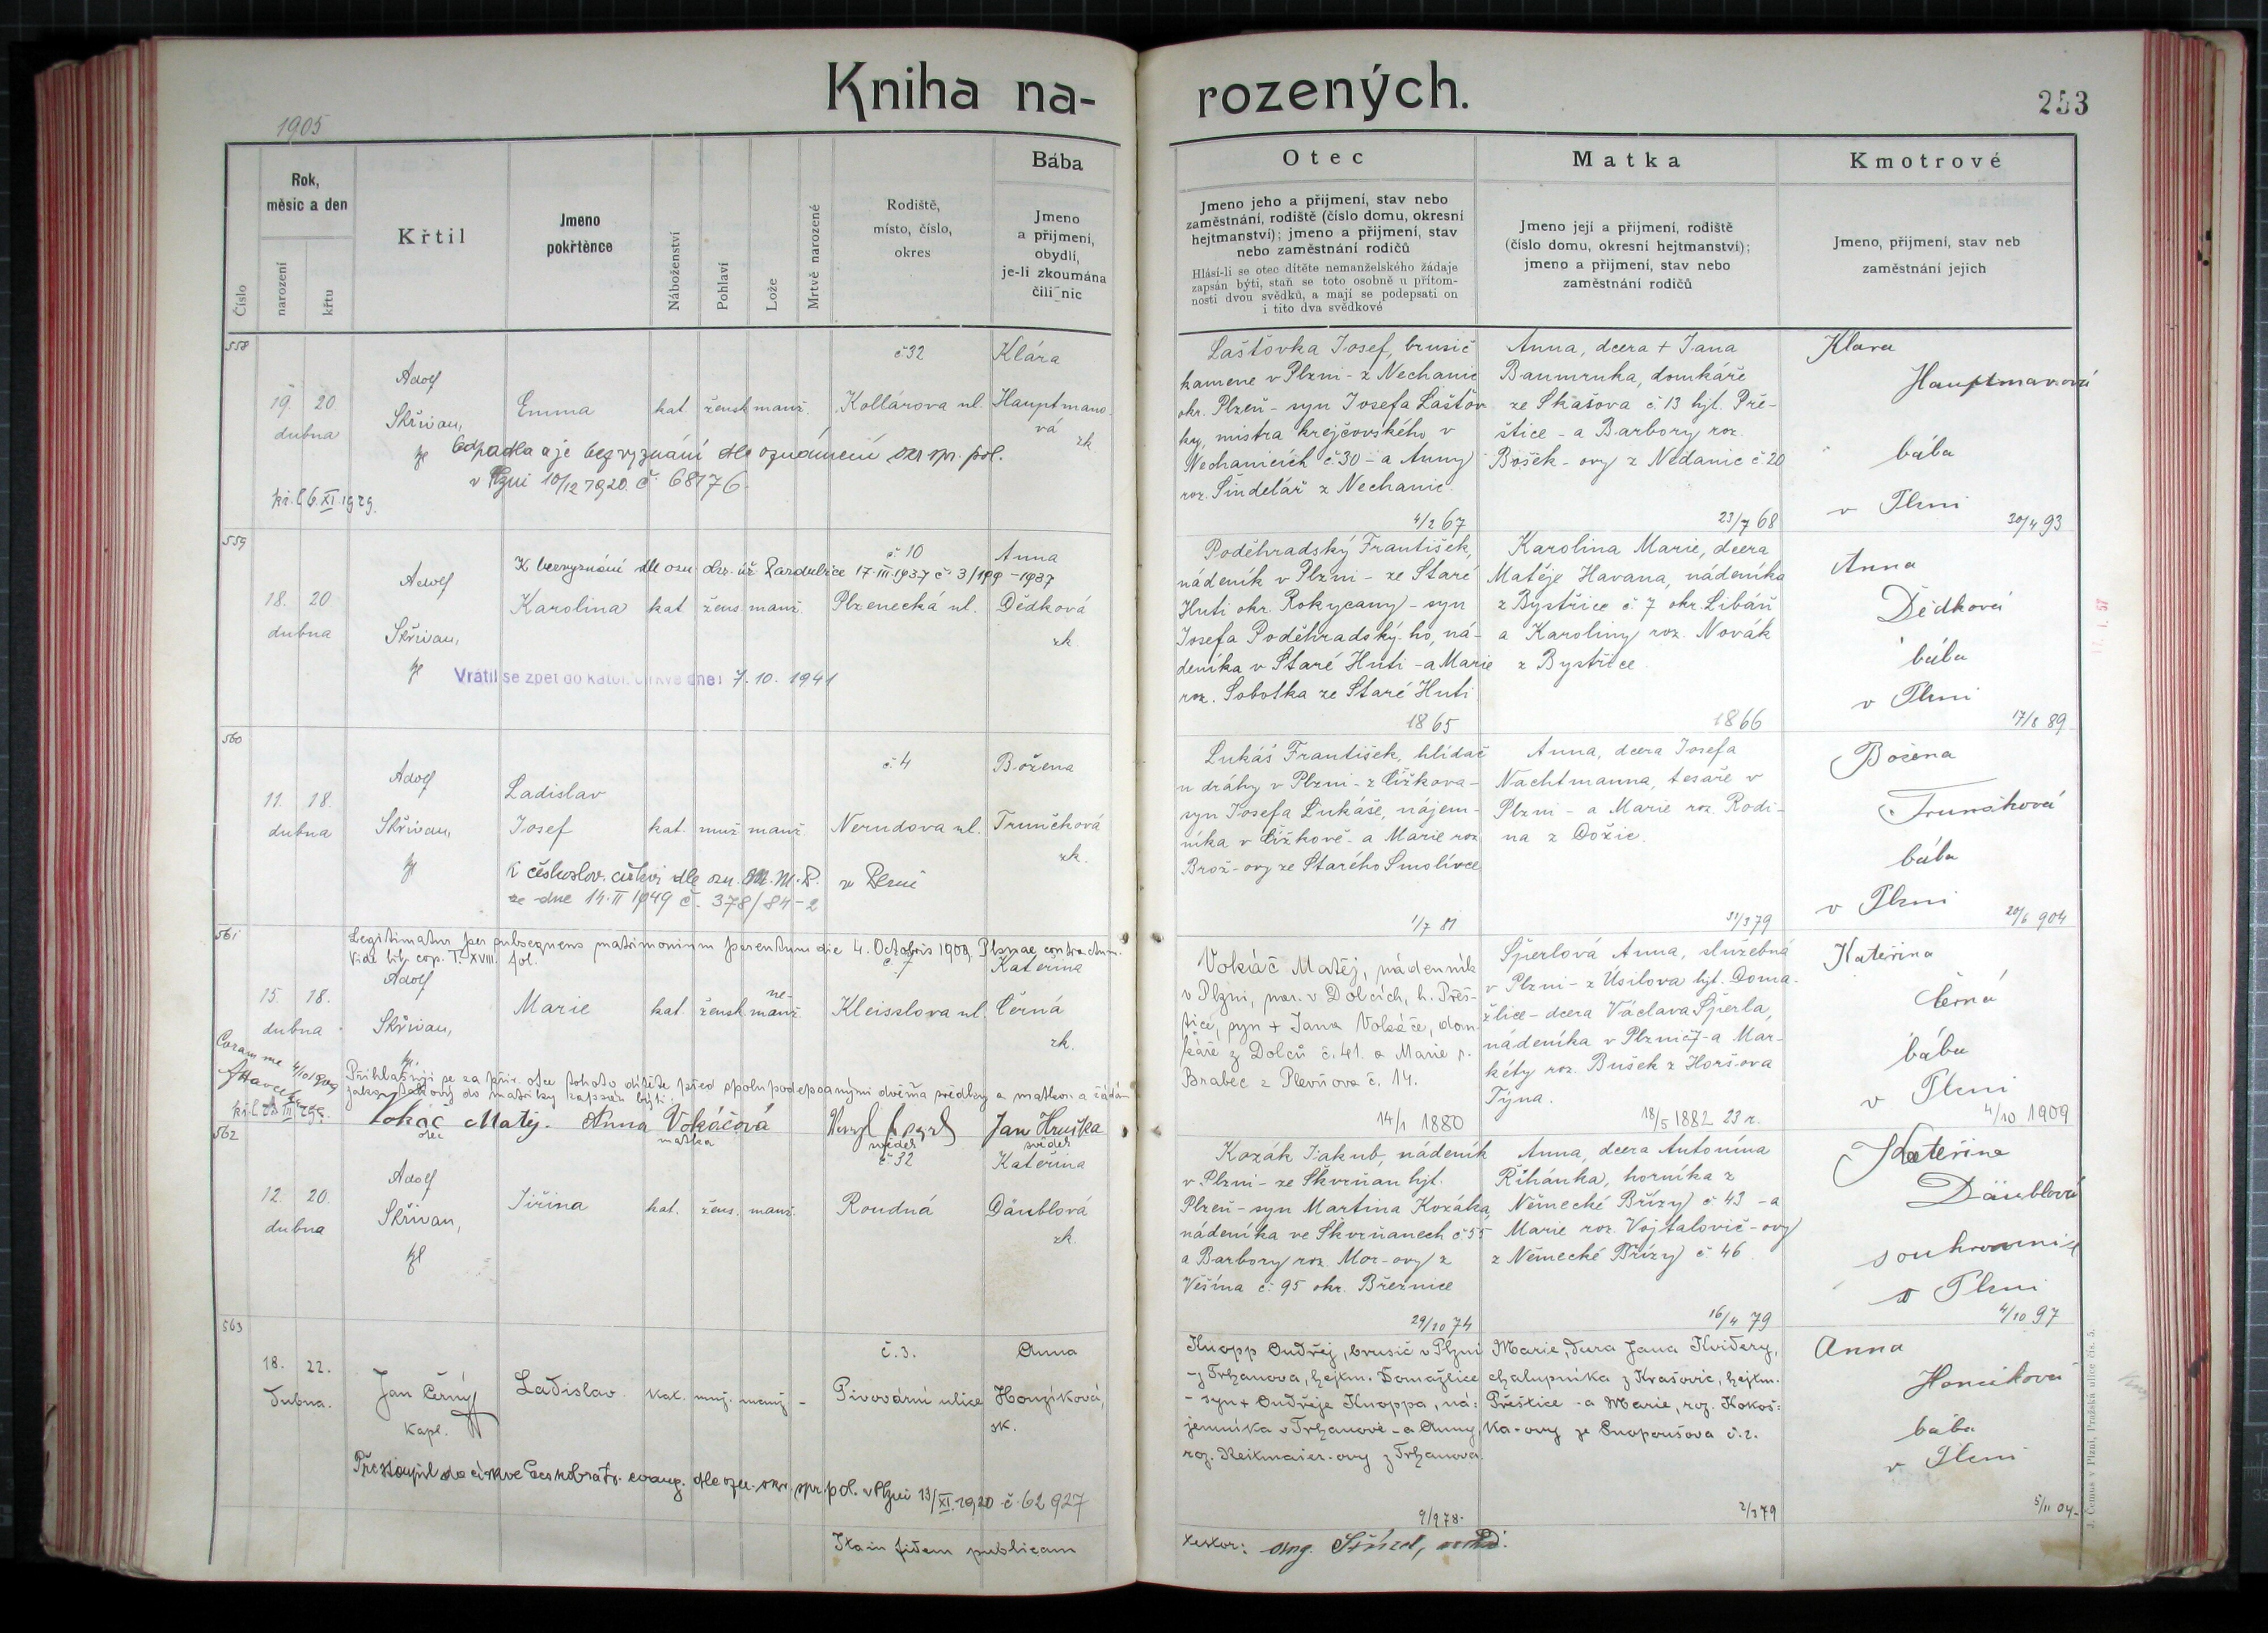 Kniha na-
rozených.
253
1905
Číslo
Rok,
měsíc a den
narození
křtu
Křtil
Jmeno
pokřtěnce
Náboženství
Pohlaví
Lože
Mrtvě narozené
Rodiště,
místo, číslo,
okres
Bába
Jmeno
a přijmení,
obydlí,
je-li zkoumána
čili nic
Otec
Jmeno jeho a přijmení, stav nebo
zaměstnání, rodiště (číslo domu, okresní
hejtmanství); jmeno a přijmení, stav
nebo zaměstnání rodičů
Hlásí-li se otec dítěte nemanželského žádaje
zapsán býti, staň se toto osobně u přítom-
nosti dvou svědků, a mají se podepsati on
i tito dva svědkové
Matka
Jmeno její a přijmení, rodiště
(číslo domu, okresní hejtmanství);
jmeno a přijmení, stav nebo
zaměstnání rodičů
Kmotrové
Jmeno, přijmení, stav neb
zaměstnání jejich
558
19. 20
dubna
Adolf
Skřivan,
Emma
kat. žensk. manž.
č 32
Kollárova ul.
Klára
Hauptmano-
vá
zk.
Odpadla a je bez vyznání dle oznámení okr. spr. pol.
v Plzni 10/12 1920. č. 68176.
kř. l. 6. XI. 1929.
Laštovka Josef, brusič
kamene v Plzni - z Nechanic
okr. Plzeň - syn Josefa Laštov
ky, mistra krejčovského v
Nechanicích č 30 - a Anny
roz. Šindelář z Nechanic.
4/2 67
Anna, dcera + Jana
Baumruka, domkáře
ze Skašova č. 13 hjt. Pře-
štice - a Barbory roz.
Bošek - ovy z Nedanic č. 20
23/7 68
Klara
Hauptmanová
bába
v Plzni
30/4 93
559
18. 20
dubna
Adolf
Skřivan,
K bezvyznání dle ozn. okr. úř. Pardubice 17. III. 1937 č. 3/199 - 1937
Karolina
kat. žens. manž.
č. 10
Plzenecká ul.
Anna
Dědková
zk.
Vrátil se zpět do katol. církve dne: 7. 10. 1941
Poděhradský František,
nádeník v Plzni - ze Staré
Huti okr. Rokycany - syn
Josefa Poděhradský-ho, ná-
deníka v Staré Huti - a Marie
roz. Sobotka ze Staré Huti
1865
Karolina Marie, dcera
Matěje Havana, nádeníka
z Bystřice č. 7 okr. Libáň
a Karoliny roz. Novák
z Bystřice
1866
Anna
Dědková
bába
v Plzni
17/8 89
560
11. 18.
dubna
Adolf
Skřivan,
Ladislav
Josef
kat. muž. manž.
č. 4
Nerudova ul.
Božena
Trunčková
zk.
K českoslov. církvi dle ozn. M.N.V. v Plzni
ze dne 14. II 1949 č. 378/84-2
Lukáš František, hlídač
u dráhy v Plzni - z Čížkova -
syn Josefa Lukáše, nájem-
níka v Čížkově - a Marie roz
Brož - ovy ze Starého Smolivce
1/7 81
Anna, dcera Josefa
Nachtmanna, tesaře v
Plzni - a Marie roz. Rodi-
na z Dožic.
31/3 79
Božena
Trunčková
bába
v Plzni
20/6 904
561
Legitimatur per subsequens matrimonium parentum die 4. Octobris 1909 Plznae contractum.
Vide lib. cop. T. XVIII. fol.
15. 18.
dubna
Adolf
Skřivan,
Marie
kat. žensk. ne-
manž.
č. 7
Kleisslova ul.
Kateřina
Černá
zk.
Coram me 4/10 1909
Přihlašuji se za přir. otce tohoto dítěte před spolupodepsanými dvěma svědky a matkou a žádám
jakožto takový do matriky zapsán býti.
Vokáč Matěj. Anna Vokáčová
otec
matka
Jan Hruška
svědek
svědek
Vokáč Matěj, nádenník
v Plzni, nar. v Dolcích, h. Přeš-
tice, syn + Jana Vokáče, dom-
káře z Dolců č. 41. a Marie r.
Brabec z Plevňova č. 14.
14/1 1880
Šperlová Anna, služebná
v Plzni - z Úsilova hjt. Doma-
žlice - dcera Václava Šperla,
nádeníka v Plzni č 7 - a Mar-
kéty roz. Bušek z Horšova
Týna.
18/5 1882 23 r.
Kateřina
Černá
bába
v Plzni
4/10 1909
562
12. 20.
dubna
Adolf
Skřivan,
Jiřina
kat. žens. manž.
č 32
Roudná
Kateřina
Däublová
zk.
Kozák Jakub, nádeník
v Plzni - ze Skvrňan hjt.
Plzeň - syn Martina Kozáka,
nádeníka ve Skvrňanech č 55
a Barbory roz. Mor - ovy z
Věšína č. 95 okr. Březnice
29/10 74
Anna, dcera Antonína
Řihánka, horníka z
Německé Břízy č 43 - a
Marie roz. Vojtalovič - ovy
z Německé Břízy č 46
16/4 79
Kateřina
Däublová
v Plzni
4/10 97
563
18. 22.
dubna.
Jan Černý
kapl.
Ladislav
kat. muž. manž. -
č. 3.
Pivovární ulice
Anna
Honzíková,
zk.
Přestoupil do církve českobratr. evang. dle ozn. okr. spr. pol. v Plzni 13/XI. 1920 č. 62927
Knopp Ondřej, brusič v Plzni
- z Trhanova, hejtm. Domažlice
- syn + Ondřeje Knoppa, ná-
jemníka v Trhanově - a Anny,
roz. Reikmaier-ovy z Trhanova.
9/9 78.
Marie, dcera Jana Kvidery,
chalupníka z Krašovic, hejtm.
Přeštice - a Marie, roz. Kokoš-
ka-ovy ze Snopoušova č. 2.
2/3 79
Anna
Honzíková
bába
v Plzni
5/11 04.
Ita in fidem publicam
testor:
J. Černus v Plzni, Pražská ulice čís. 5.